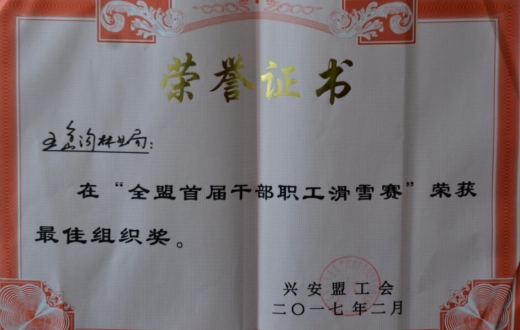 荣誉证书
五岔沟林业局：
在“全盟首届干部职工滑雪赛”荣获
最佳组织奖。
兴安盟工会
二〇一七年二月